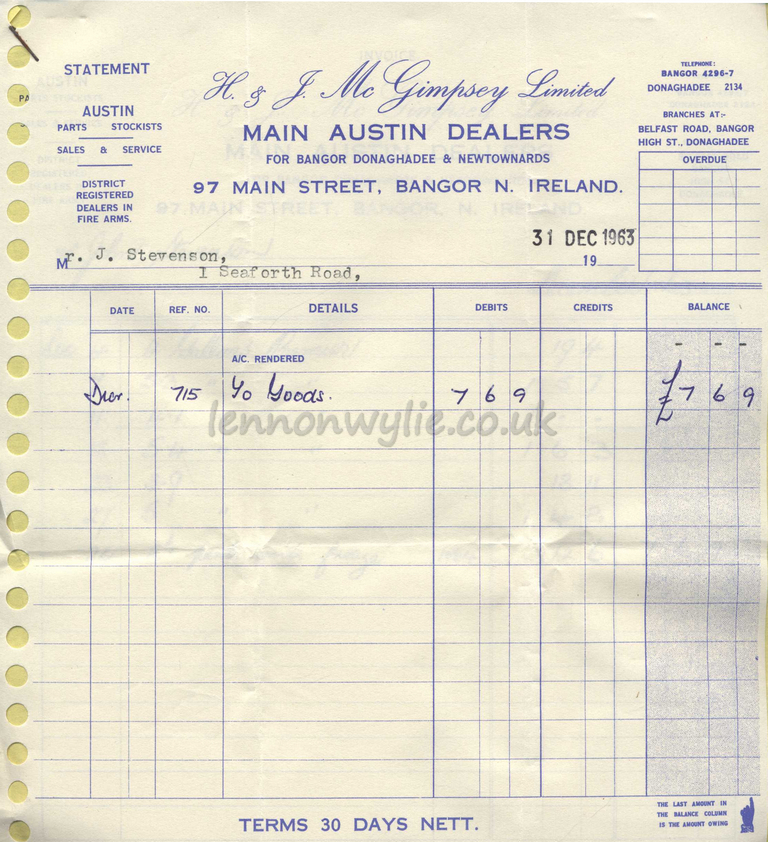 STATEMENT
AUSTIN
PARTS STOCKISTS
SALES & SERVICE
DISTRICT
REGISTERED
DEALERS IN
FIRE ARMS.
H. & J. Mc Gimpsey Limited
MAIN AUSTIN DEALERS
FOR BANGOR DONAGHADEE & NEWTOWNARDS
97 MAIN STREET, BANGOR N. IRELAND.
TELEPHONE:
BANGOR 4296-7
DONAGHADEE 2134
BRANCHES AT:-
BELFAST ROAD, BANGOR
HIGH ST., DONAGHADEE
OVERDUE
31 DEC 1963
19
Mr. J. Stevenson,
1 Seaforth Road,
DATE REF. NO. DETAILS DEBITS CREDITS BALANCE
- - -
A/C. RENDERED
715 To Goods. 7 6 9 £7 6 9
lennonwylie.co.uk
TERMS 30 DAYS NETT.
THE LAST AMOUNT IN
THE BALANCE COLUMN
IS THE AMOUNT OWING